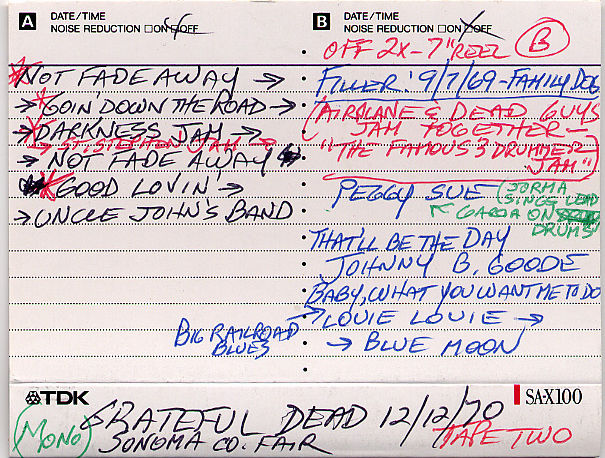 A DATE/TIME
NOISE REDUCTION □ ON □ OFF
NOT FADE AWAY →
→ GOIN' DOWN THE ROAD →
→ DARKNESS JAM →
→ ST. STEPHEN JAM →
→ NOT FADE AWAY
GOOD LOVIN' →
→ UNCLE JOHN'S BAND
B DATE/TIME
NOISE REDUCTION □ ON □ OFF
OFF 2X-7" REEL B
FILLER: 9/7/69-FAMILY DOG
(AIRPLANE & DEAD GUYS
JAM TOGETHER-
"THE FAMOUS 3 DRUMMER
JAM")
PEGGY SUE (JORMA
SINGS LEAD
GARCIA ON
DRUMS)
THAT'LL BE THE DAY
JOHNNY B. GOODE
BABY, WHAT YOU WANT ME TO DO
→ LOUIE LOUIE →
→ BLUE MOON
BIG RAILROAD
BLUES
TDK
SA-X100
MONO
GRATEFUL DEAD 12/12/70
SONOMA CO. FAIR
TAPE TWO